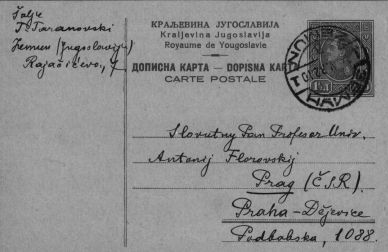 Šalje
T. Taranovski
Zemun (Jugoslavija)
Rajačićevo, 4
КРАЉЕВИНА ЈУГОСЛАВИЈА
Kraljevina Jugoslavija
Royaume de Yougoslavie
ДОПИСНА КАРТА — DOPISNA KARTA
CARTE POSTALE
Slovutny Pan Profesor Univ.
Antonij Florovskij
Prag (ČSR).
Praha-Dějevice
Podbabska, 1088.